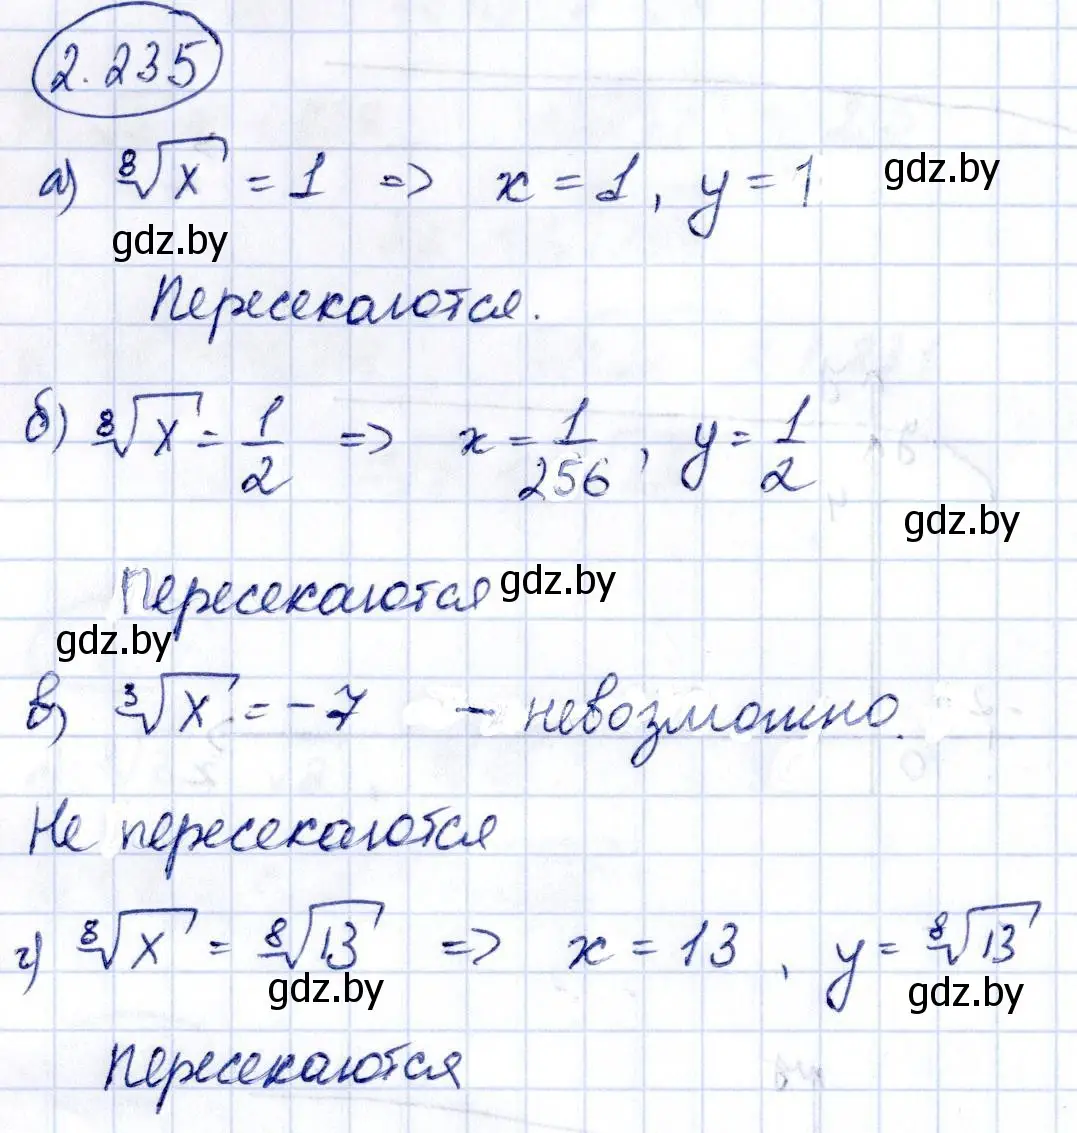 2.235
а) ⁸√x = 1 => x = 1, y = 1 gdz.by
gdz.by
Пересекаются.
б) ⁸√x = 1/2 => x = 1/256, y = 1/2
gdz.by
Пересекаются gdz.by
gdz.by
в) ³√x = -7 - невозможно.
Не пересекаются
г) ⁸√x = ⁸√13 => x = 13, y = ⁸√13
gdz.by gdz.by
Пересекаются